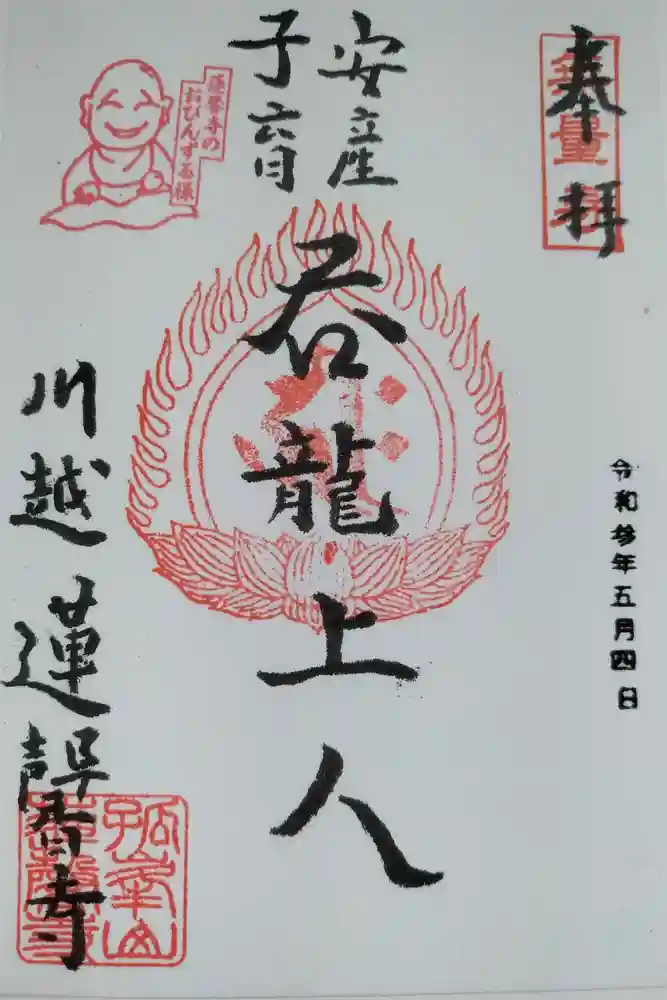 奉拝
無量寿
令和参年五月四日
安産
子育
呑龍上人
蓮馨寺の
おびんずる様
川越 蓮馨寺
孤峯山
蓮馨寺